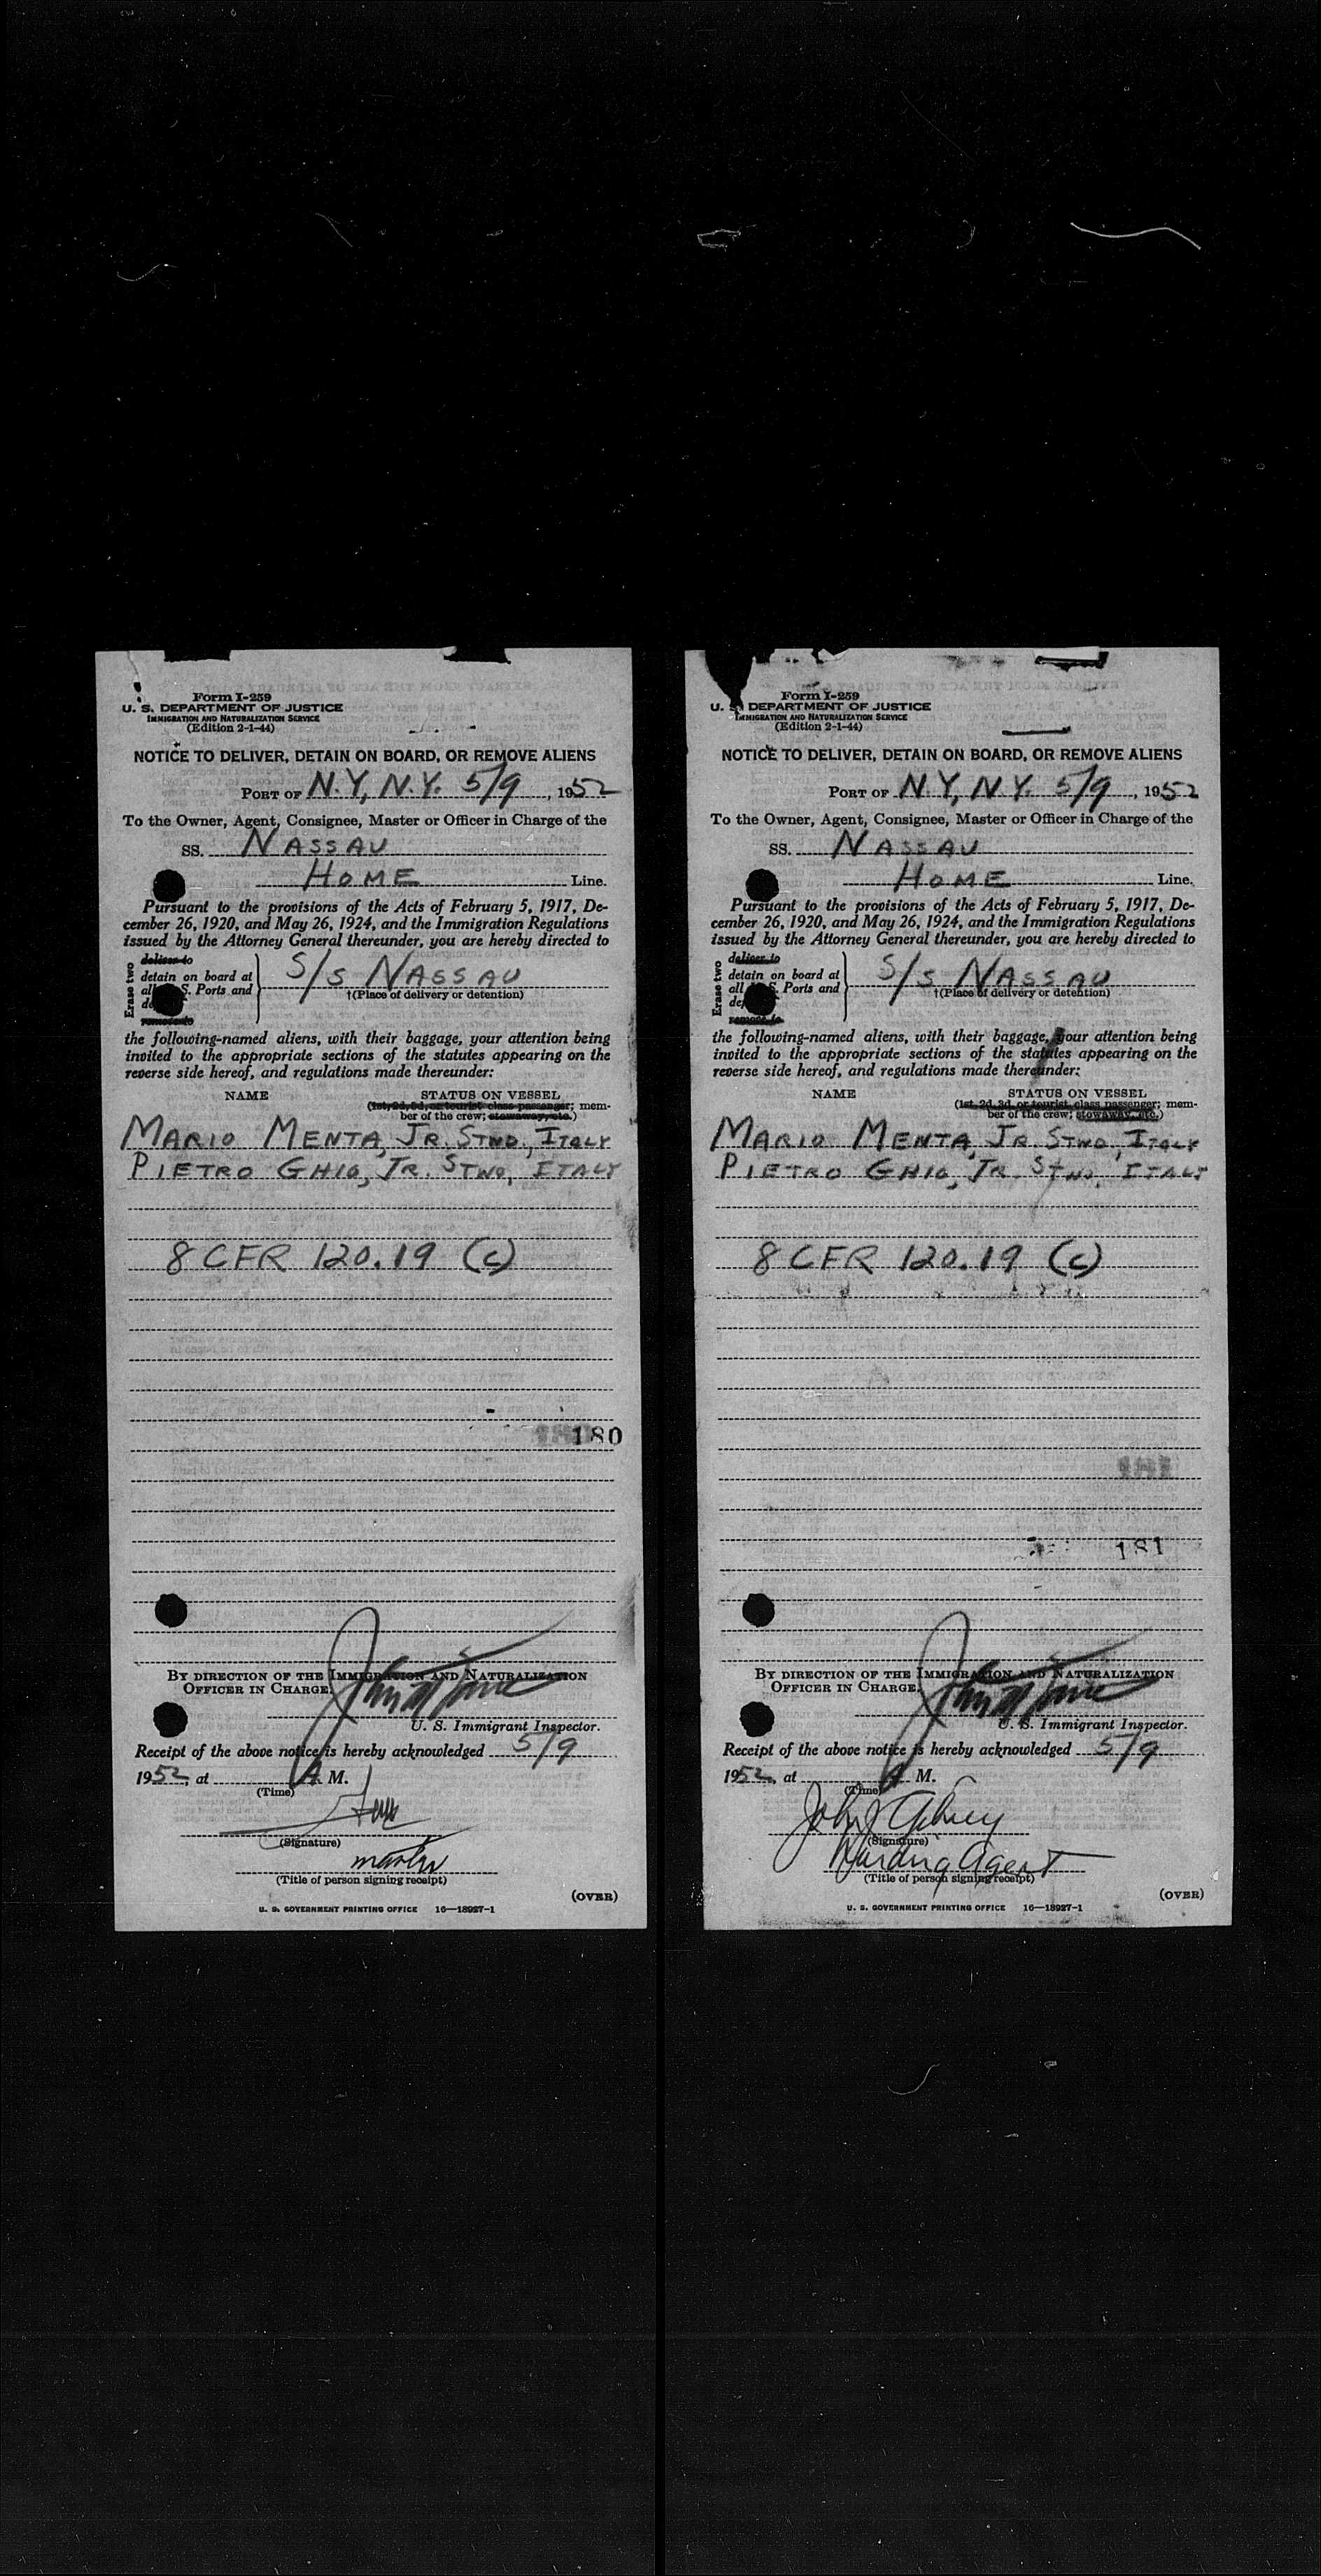 Form I-259
U. S. DEPARTMENT OF JUSTICE
IMMIGRATION AND NATURALIZATION SERVICE
(Edition 2-1-44)
NOTICE TO DELIVER, DETAIN ON BOARD, OR REMOVE ALIENS
PORT OF N.Y, N.Y. 5/9, 1952
To the Owner, Agent, Consignee, Master or Officer in Charge of the
SS. NASSAU
HOME Line.
Pursuant to the provisions of the Acts of February 5, 1917, De-
cember 26, 1920, and May 26, 1924, and the Immigration Regulations
issued by the Attorney General thereunder, you are hereby directed to
Erase two
deliver to
detain on board at
all S. Ports and
remove to
S/S NASSAU
†(Place of delivery or detention)
the following-named aliens, with their baggage, your attention being
invited to the appropriate sections of the statutes appearing on the
reverse side hereof, and regulations made thereunder:
NAME STATUS ON VESSEL
(1st, 2d, 3d, or tourist class passenger; mem-
ber of the crew; stowaway, etc.)
MARIO MENTA, JR. STWD, ITALY
PIETRO GHIO, JR. STWD, ITALY
8 CFR 120.19 (c)
180
BY DIRECTION OF THE IMMIGRATION AND NATURALIZATION
OFFICER IN CHARGE.
U. S. Immigrant Inspector.
Receipt of the above notice is hereby acknowledged 5/9
1952, at A M.
(Time)
(Signature)
master
(Title of person signing receipt)
(OVER)
U. S. GOVERNMENT PRINTING OFFICE 16—18927-1
Form I-259
U. S. DEPARTMENT OF JUSTICE
IMMIGRATION AND NATURALIZATION SERVICE
(Edition 2-1-44)
NOTICE TO DELIVER, DETAIN ON BOARD, OR REMOVE ALIENS
PORT OF N.Y, N.Y. 5/9, 1952
To the Owner, Agent, Consignee, Master or Officer in Charge of the
SS. NASSAU
HOME Line.
Pursuant to the provisions of the Acts of February 5, 1917, De-
cember 26, 1920, and May 26, 1924, and the Immigration Regulations
issued by the Attorney General thereunder, you are hereby directed to
Erase two
deliver to
detain on board at
all S. Ports and
remove to
S/S NASSAU
†(Place of delivery or detention)
the following-named aliens, with their baggage, your attention being
invited to the appropriate sections of the statutes appearing on the
reverse side hereof, and regulations made thereunder:
NAME STATUS ON VESSEL
(1st, 2d, 3d, or tourist class passenger; mem-
ber of the crew; stowaway, etc.)
MARIO MENTA, JR STWD, ITALY
PIETRO GHIO, JR. STWD, ITALY
8 CFR 120.19 (c)
181
181
BY DIRECTION OF THE IMMIGRATION AND NATURALIZATION
OFFICER IN CHARGE.
U. S. Immigrant Inspector.
Receipt of the above notice is hereby acknowledged 5/9
1952, at A M.
(Time)
John J
(Signature)
Agent
(Title of person signing receipt)
(OVER)
U. S. GOVERNMENT PRINTING OFFICE 16—18927-1